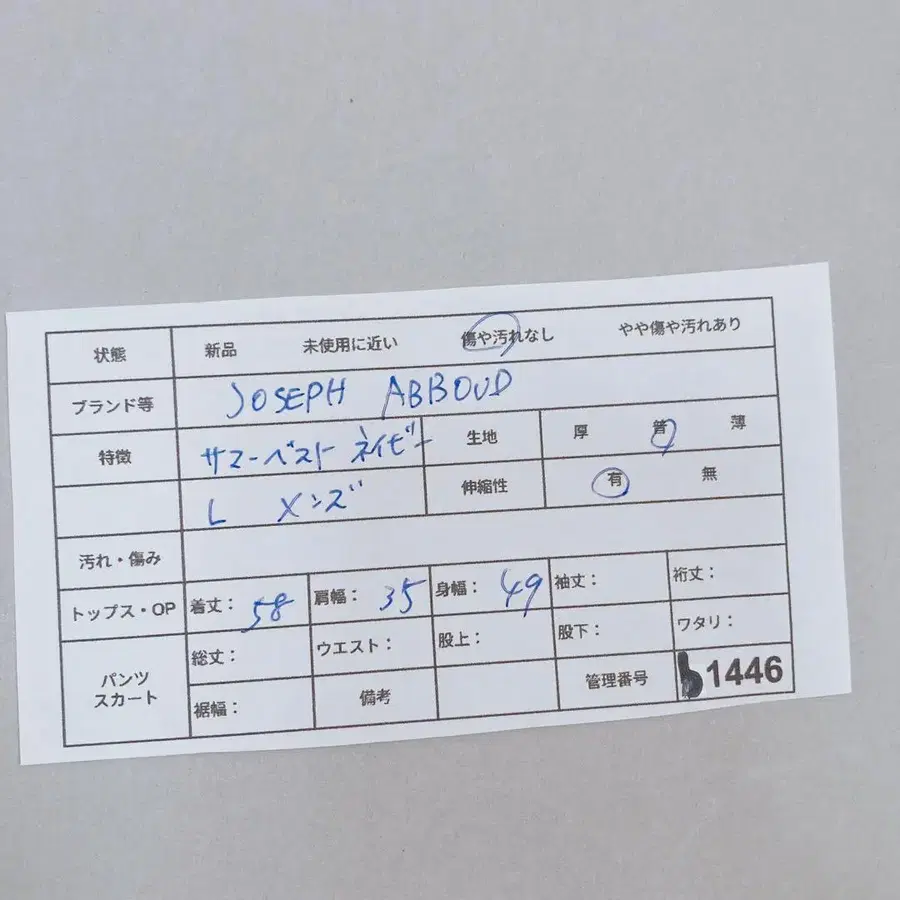 状態 新品 未使用に近い 傷や汚れなし やや傷や汚れあり
ブランド等 JOSEPH ABBOUD
特徴 サマーベスト ネイビー 生地 厚 普 薄
L メンズ 伸縮性 有 無
汚れ・傷み
トップス・OP 着丈: 58 肩幅: 35 身幅: 49 袖丈: 裄丈:
パンツ スカート 総丈: ウエスト: 股上: 股下: ワタリ:
裾幅: 備考 管理番号 b1446